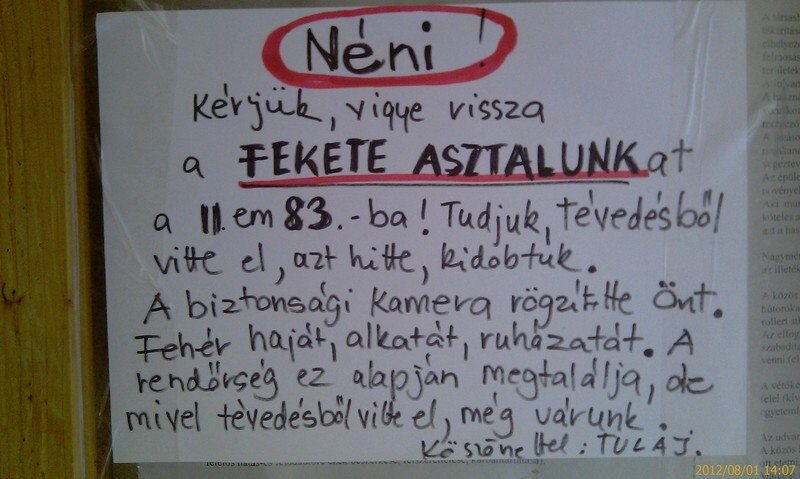 Néni!
Kérjük, vigye vissza
a FEKETE ASZTALUNKat
a II. em 83.-ba! Tudjuk, tévedésből
vitte el, azt hitte, kidobtuk.
A biztonsági kamera rögzítette Önt.
Fehér haját, alkatát, ruházatát. A
rendőrség ez alapján megtalálja, de
mivel tévedésből vitte el, még várunk.
Köszönettel: TULAJ.
2012/08/01 14:07